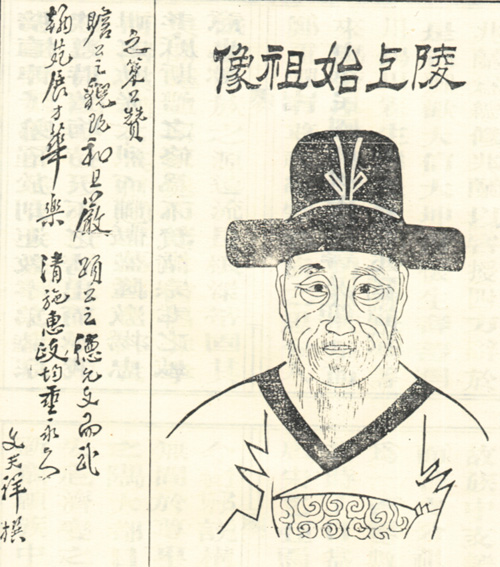 陵上始祖像
之策公贊
瞻公之貌既和且嚴 頌公之德允文而武
翰苑展才華樂 清施惠政均垂永久
文天祥撰